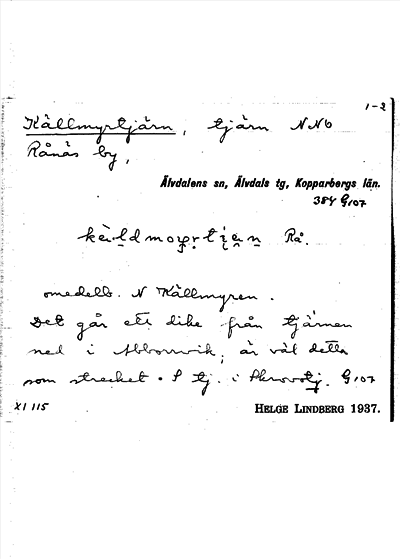 1-2
Källmyrtjärn, tjärn NNO
Rånäs by,
Älvdalens sn, Älvdals tg, Kopparbergs län.
384 G107
Rå.
omedelb. N Källmyren.
Det går ett dike från tjärnen
ned i Abborrvik, är väl detta
som strecket. S tj. i Skrovotj. G107
XI 115
HELGE LINDBERG 1937.